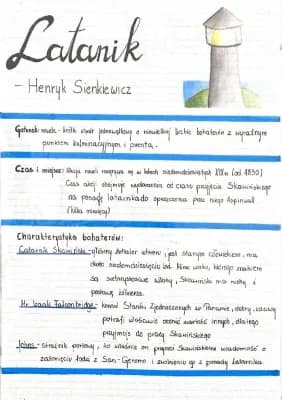 Latarnik
- Henryk Sienkiewicz
Gatunek: nowela - krótki utwór jednowątkowy o niewielkiej liczbie bohaterów z wyraźnym
punktem kulminacyjnym i puentą.
Czas i miejsce: Akcja noweli rozgrywa się w latach siedemdziesiątych XIXw. (od 1850)
Czas akcji obejmuje wydarzenia od czasu przyjścia Skawińskiego
na posadę latarnika do opuszczenia przez niego Aspinwall
(kilka miesięcy)
Charakterystyka bohaterów:
Latarnik Skawiński - główny bohater utworu, jest starym człowiekiem, ma
około siedemdziesięciu lat. Silne wieku, którego znakiem
są siwe włosy, Skawiński ma ruchy i
postawę żołnierza.
Mr Isaak Falconbridge - konsul Stanów Zjednoczonych w Panamie, dobry,
potrafi właściwie ocenić wartość innych, dlatego
przyjmuje do pracy Skawińskiego
Johns - strażnik portowy, to właśnie on przynosi Skawińskiemu wiadomość o
zatonięciu łodzi z San-Geromo i zwolnieniu go z posady Latarnika.